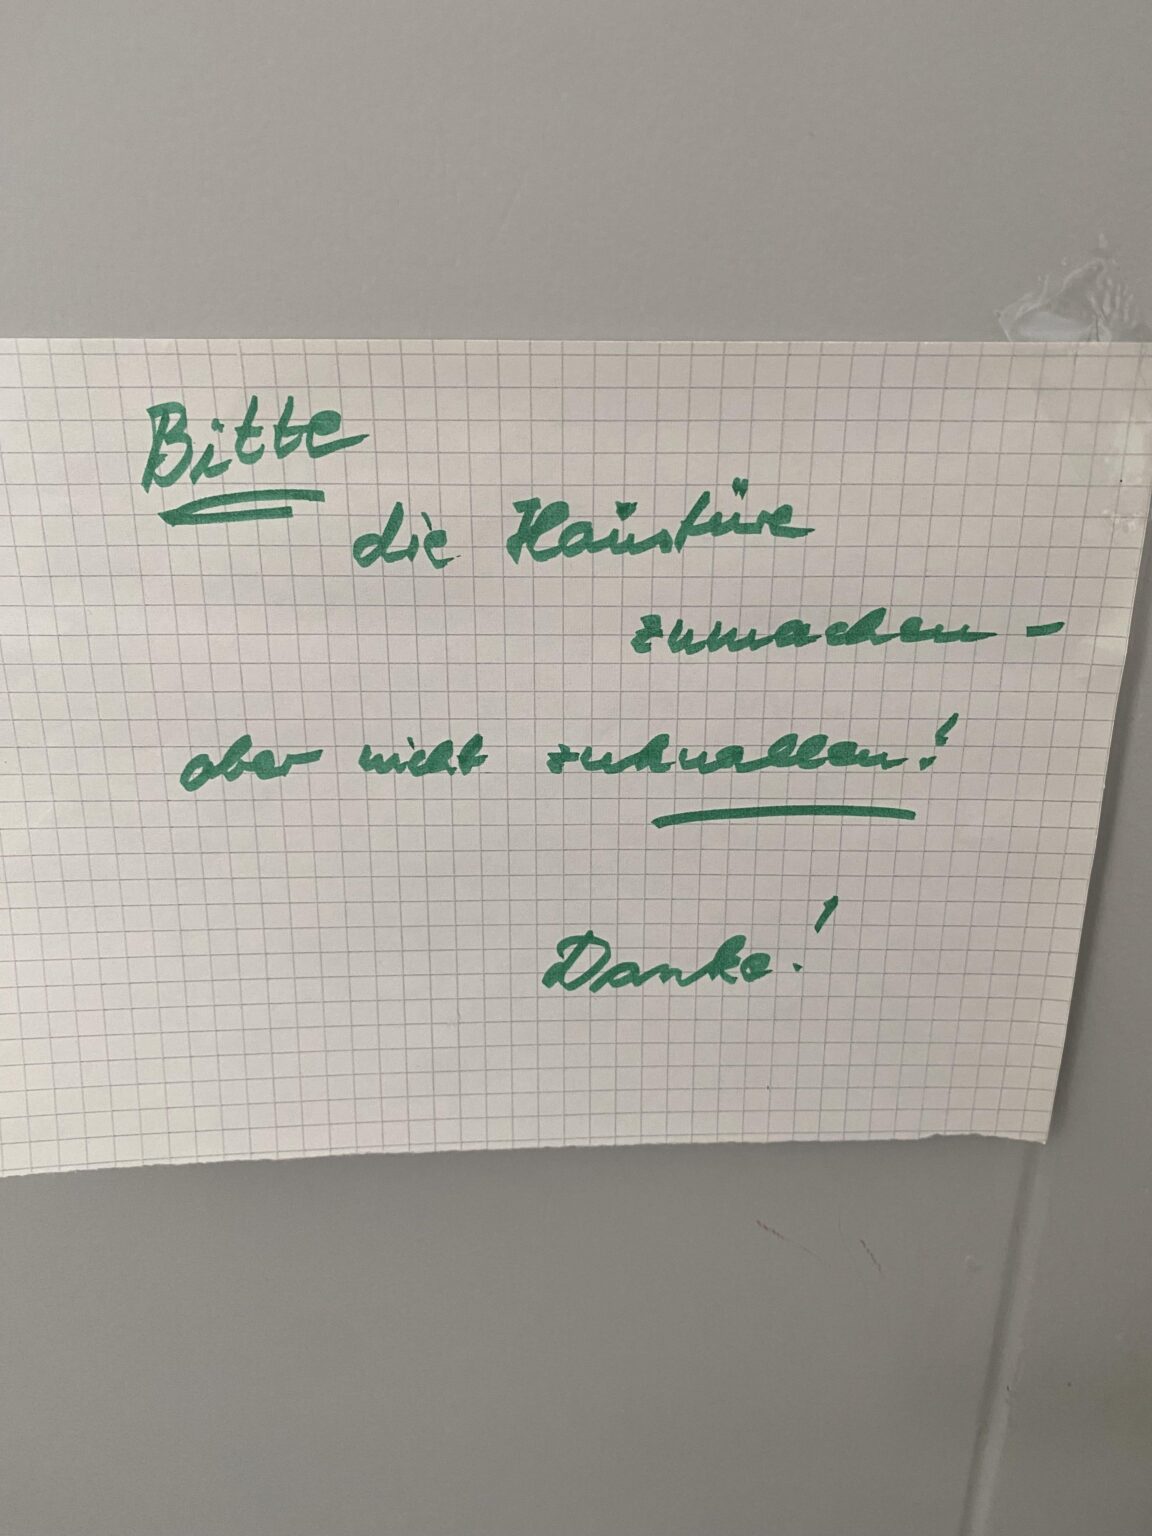 Bitte
die Haustüre
zumachen -
aber nicht zuknallen!
Danke!